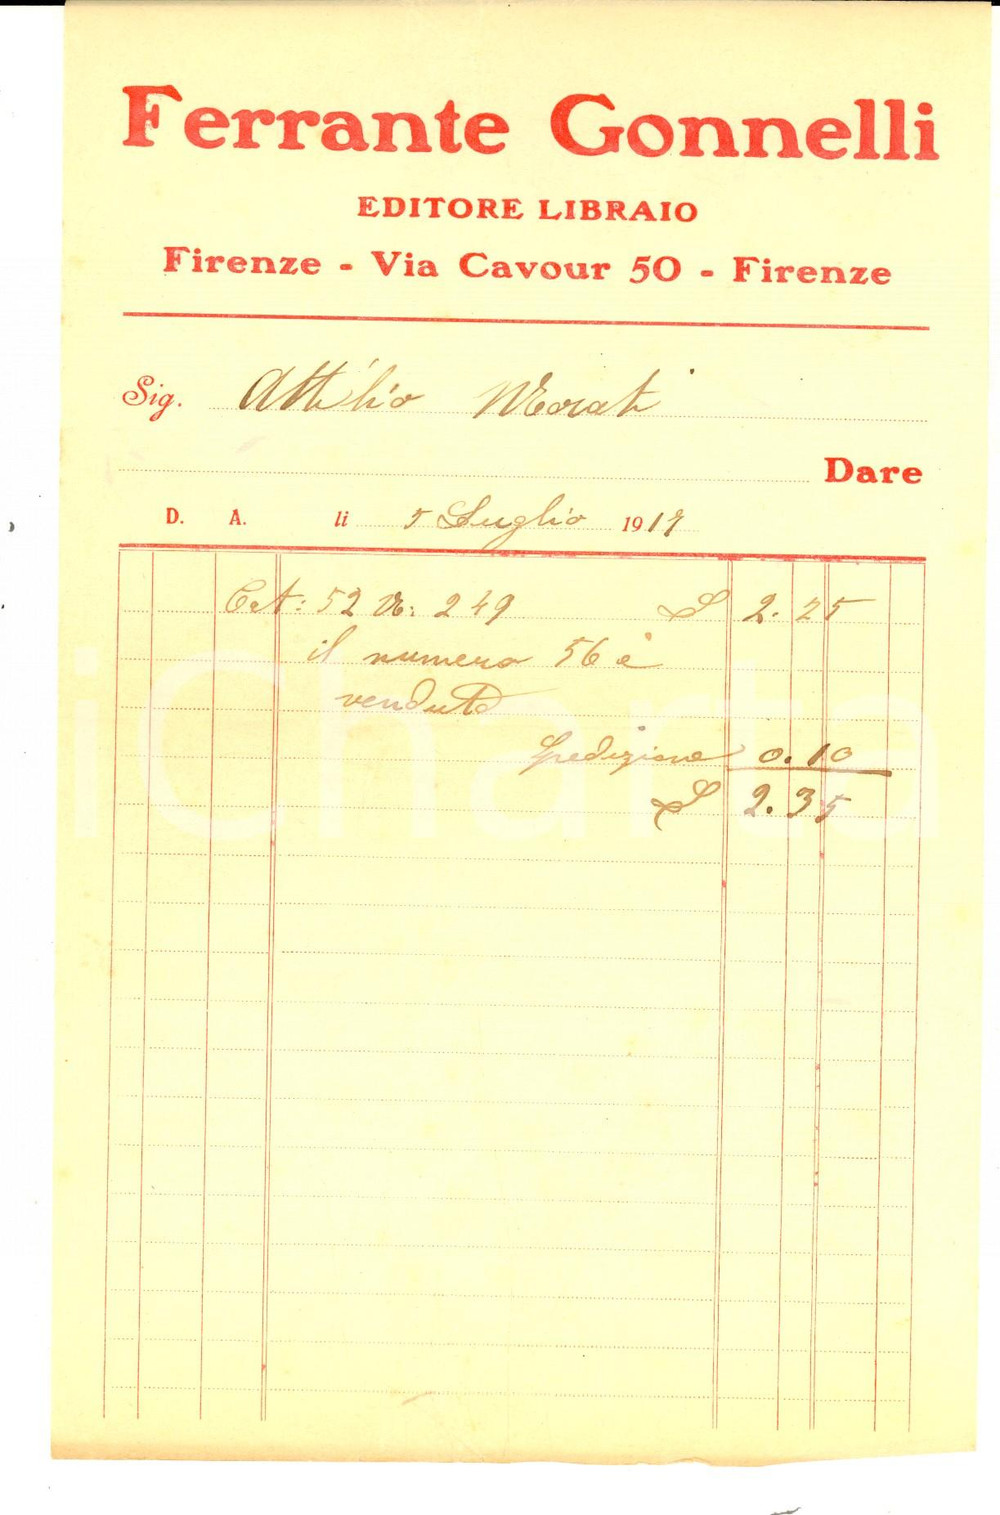 Ferrante Gonnelli
EDITORE LIBRAIO
Firenze - Via Cavour 50 - Firenze
Sig. Attilio Morati
Dare
D. A. li 5 Luglio 1917
Cat: 52 N: 249 L 2.25
il numero 56 è
venduto
Spedizione 0.10
L 2.35
iCharta